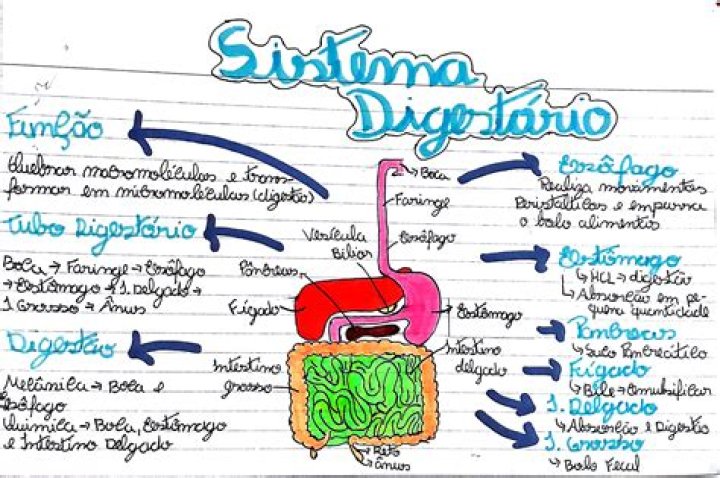 Sistema
Digestório
Função
Quebrar macromoléculas e trans-
formar em micromoléculas (digestão)
Tubo Digestório
Boca → Faringe → Esôfago
→ Estômago → I. Delgado →
I. Grosso → Ânus
Digestão
Mecânica → Boca e
Esôfago
Química → Boca, Estômago
e Intestino Delgado
Boca
Faringe
Esôfago
Vesícula
Biliar
Pâncreas
Fígado
Estômago
Intestino
delgado
Intestino
grosso
Reto
Ânus
Esôfago
Realiza movimentos
Peristálticos e empurra
o bolo alimentar
Estômago
↳ HCL → digestão
↳ Absorção em pe-
quena quantidade
Pâncreas
↳ Suco Pancreático
Fígado
↳ Bile → Emulsificar
I. Delgado
↳ Absorção e Digestão
I. Grosso
↳ Bolo Fecal